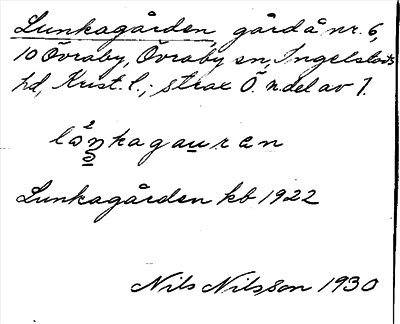 Lunkagården, gård å nr. 6,
10 Övraby, Övraby sn, Ingelstads
hd, Krist. l.; strax Ö n. del av 1.
lån̥kagauren
Lunkagården kb 1922
Nils Nilsson 1930